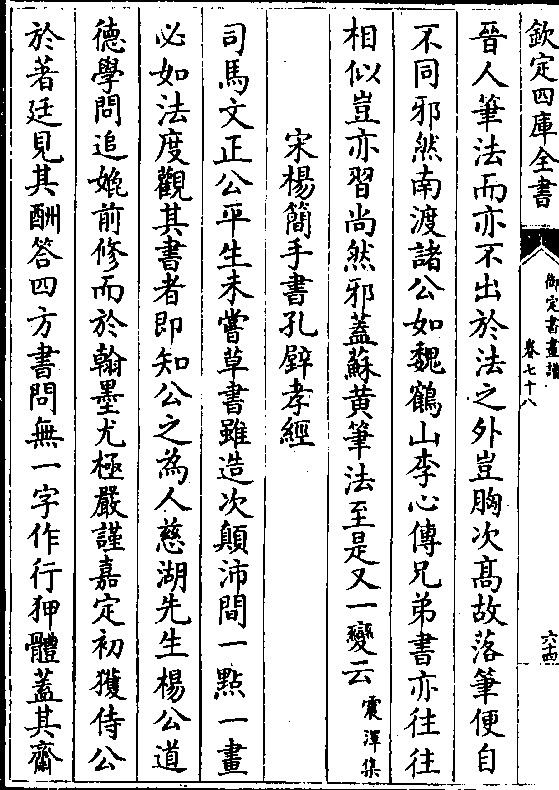 欽定四庫全書
御定書畫譜
卷七十八
六十四
晉人筆法而亦不出於法之外豈胸次髙故落筆便自
不同邪然南渡諸公如魏鶴山李心傳兄弟書亦往往
相似豈亦習尚然邪蓋蘇黄筆法至是又一變云震澤集
宋楊簡手書孔壁孝經
司馬文正公平生未嘗草書雖造次顛沛間一點一畫
必如法度觀其書者即知公之為人慈湖先生楊公道
德學問追媲前修而於翰墨尤極嚴謹嘉定初獲侍公
於著廷見其酬答四方書問無一字作行狎體蓋其齋